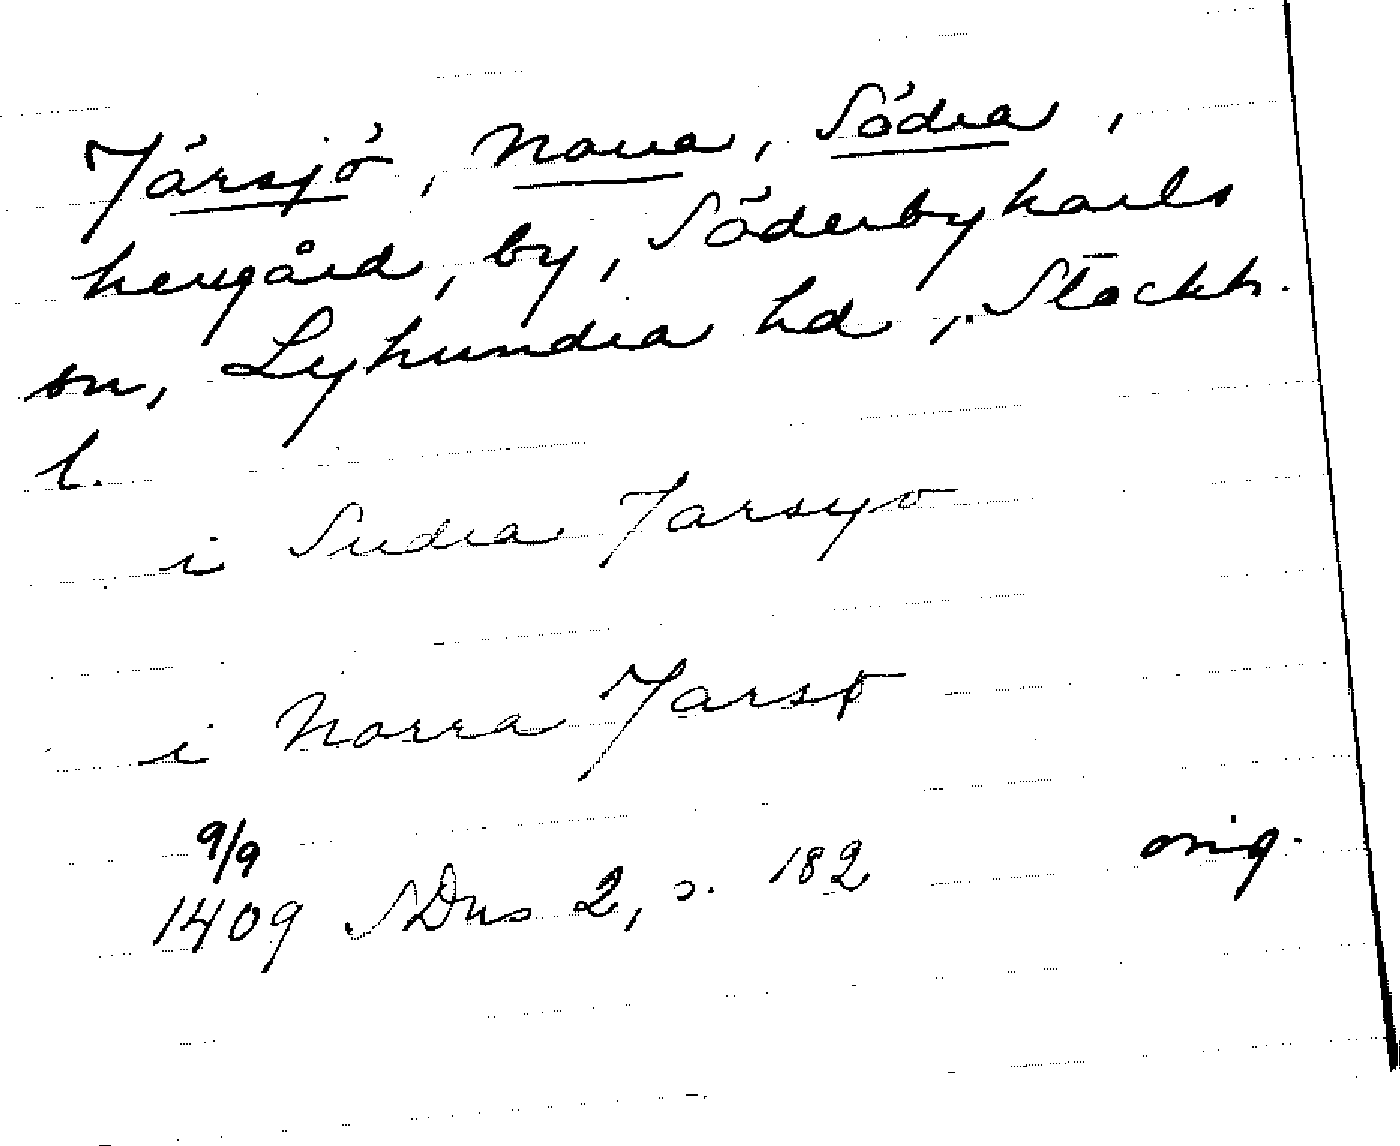 Järsjö, Norra, Södra,
herrgård, by, Söderbykarls
sn, Lyhundra hd, Stockh.
l.
i Sudra Jarsyo
i Norra Jarsø
9/9
1409 SDns 2, s. 182 orig.